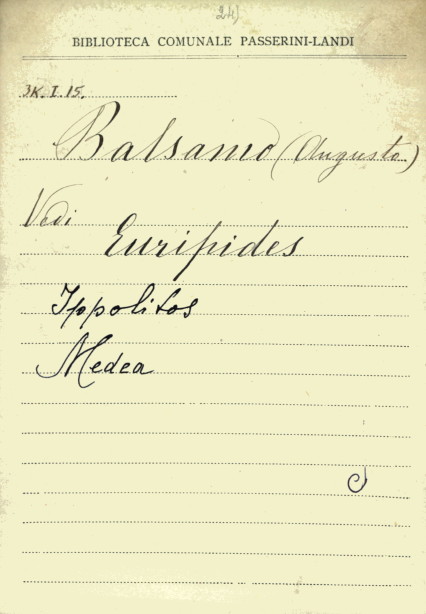 24)
BIBLIOTECA COMUNALE PASSERINI-LANDI
3K. I. 15.
Balsamo (Augusto)
Vedi
Euripides
Ippolitos
Medea